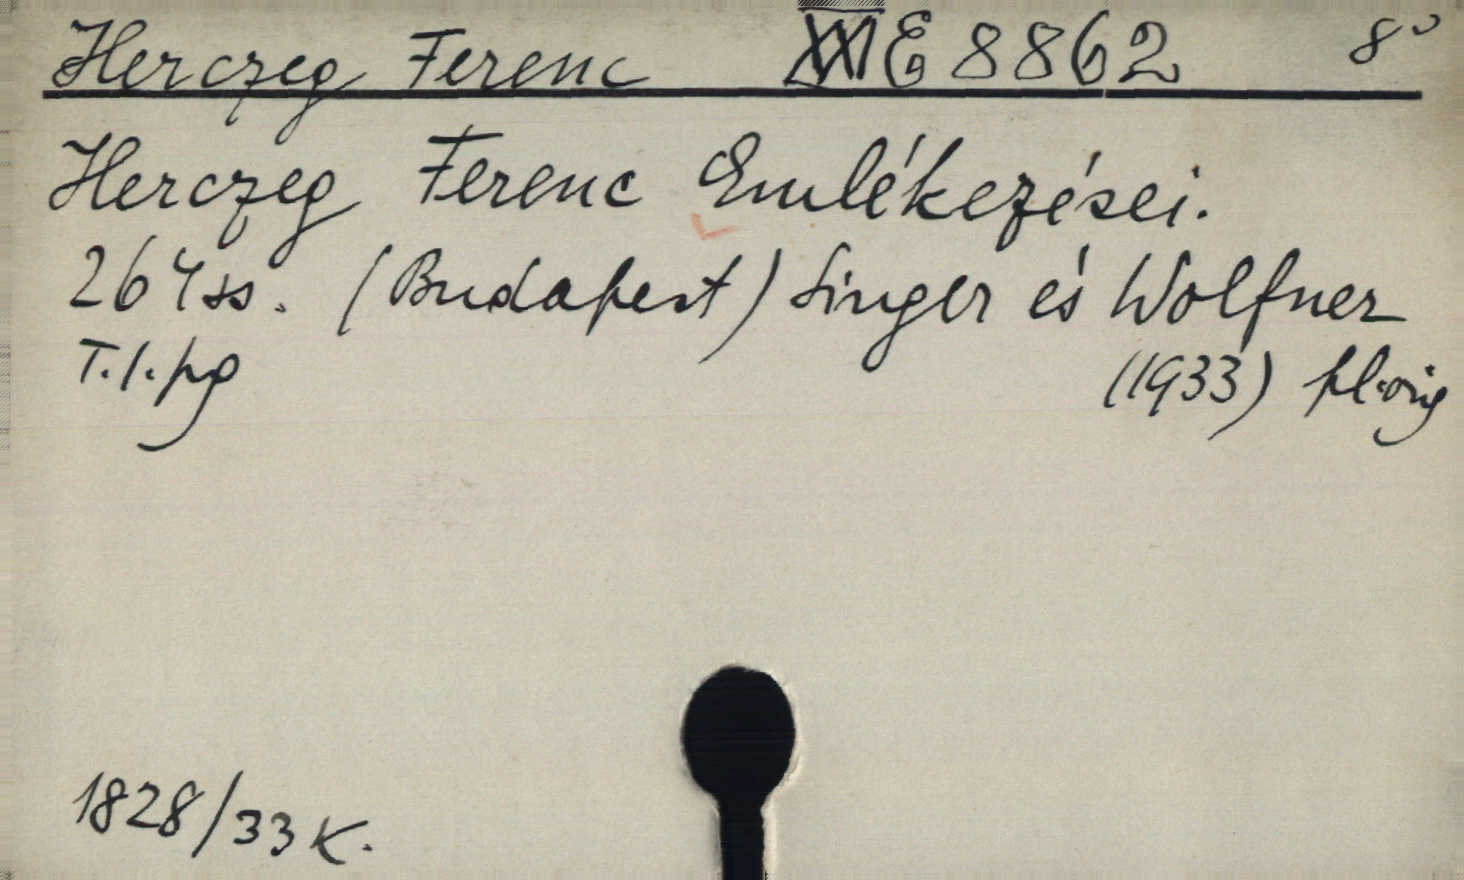 Herczeg Ferenc XXI E 8862 8°
Herczeg Ferenc Emlékezései.
264 ss. (Budapest) Singer és Wolfner
T. 1. pg (1933) pl. orig
1828/33 K.